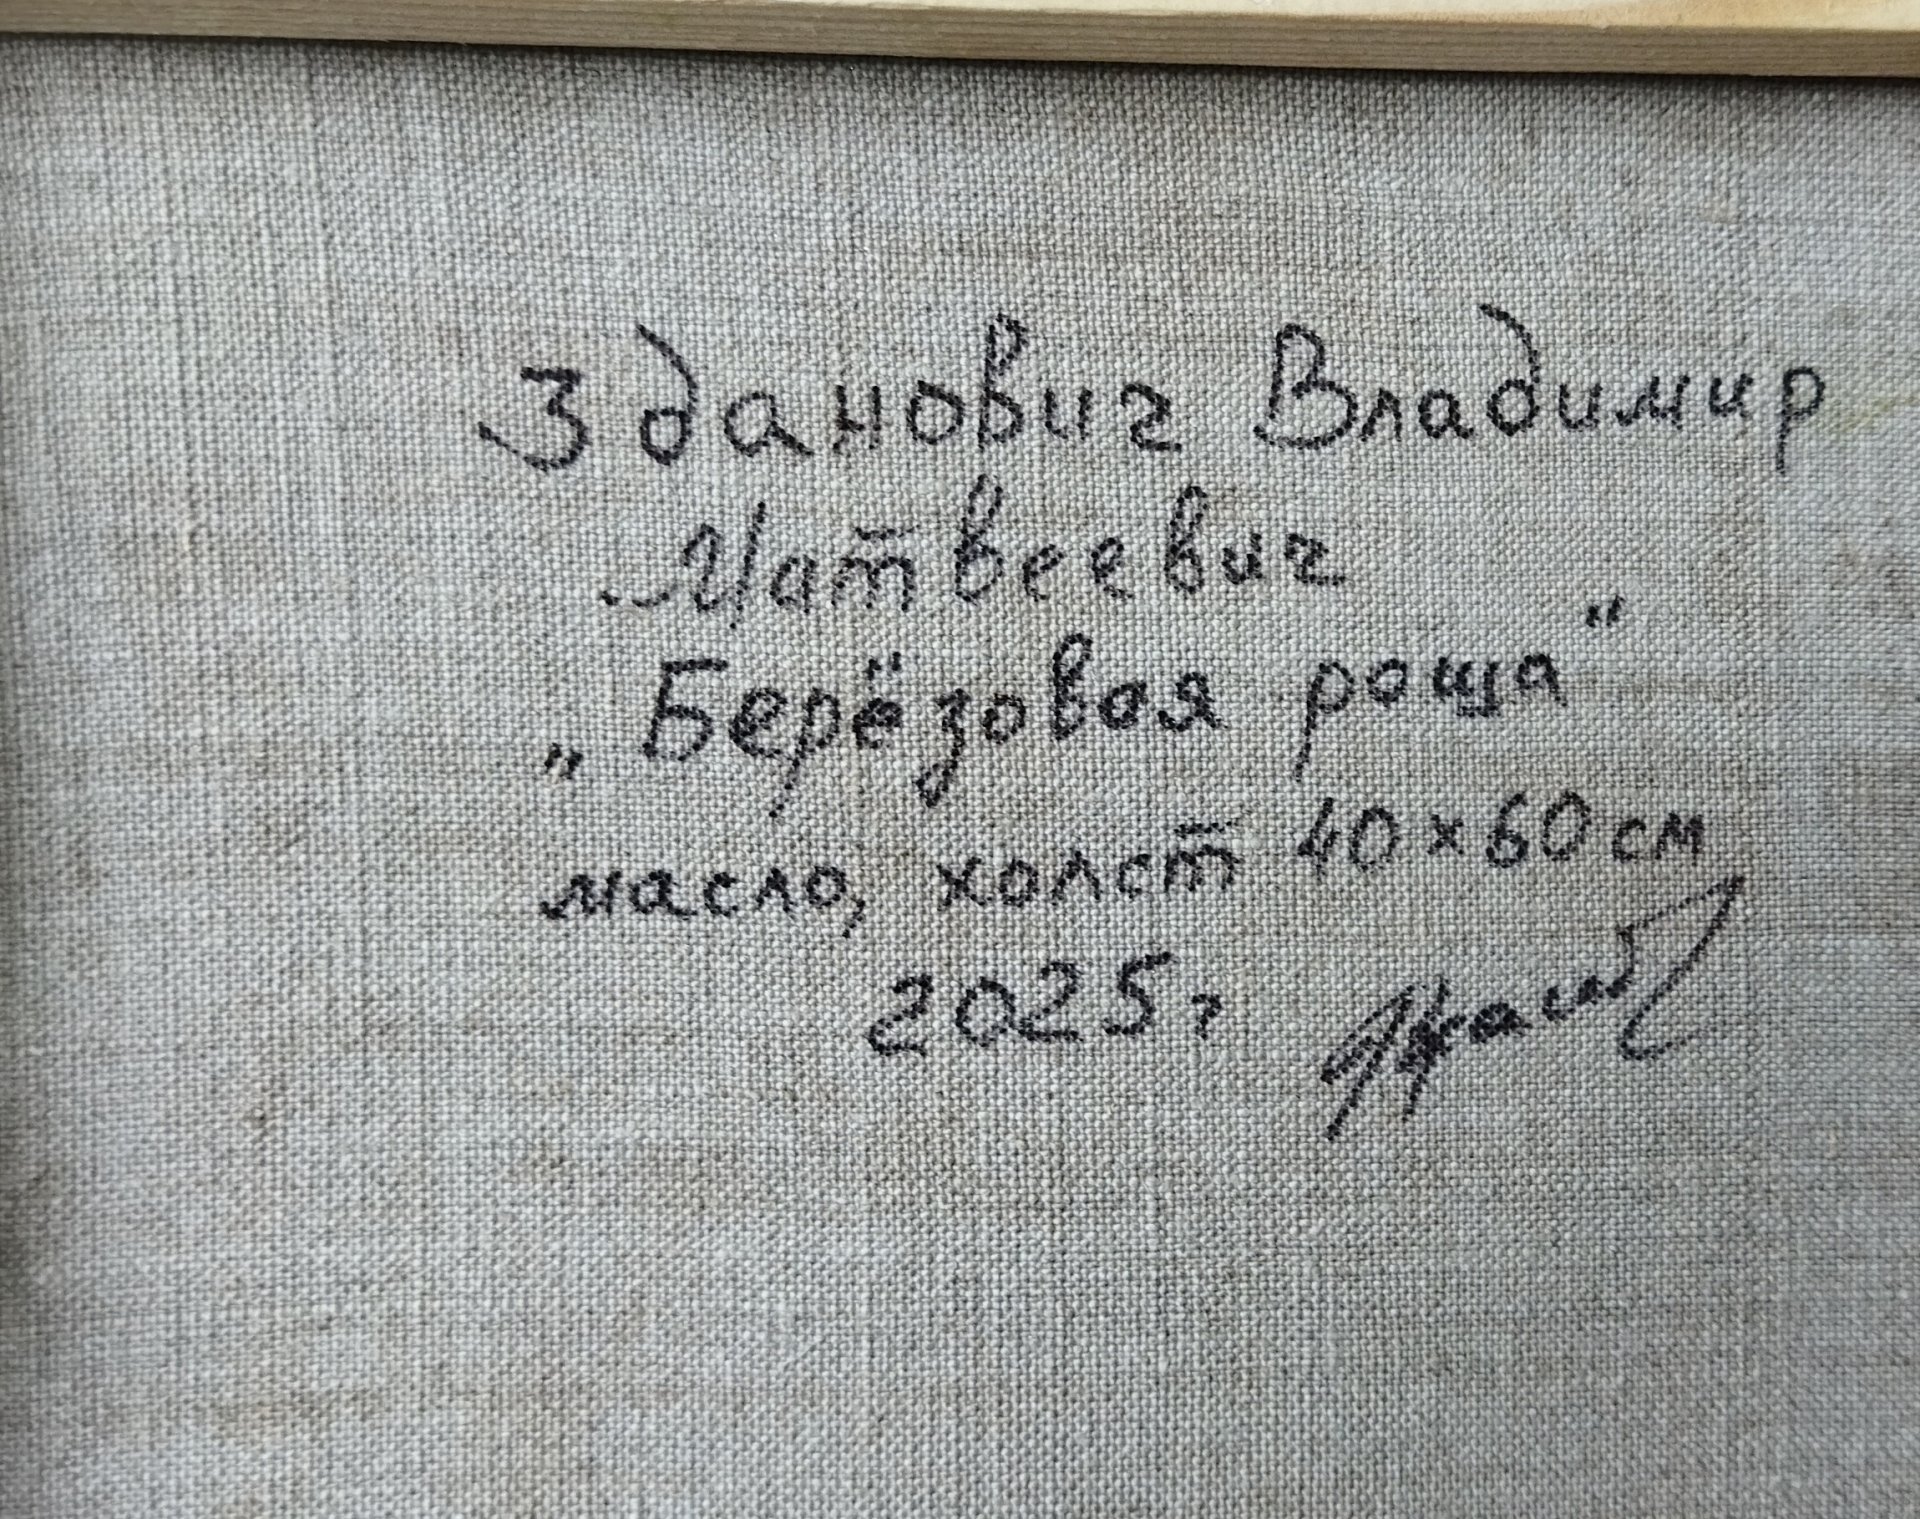 Зданович Владимир
Матвеевич
„Берёзовая роща“
масло, холст 40х60 см
2025г